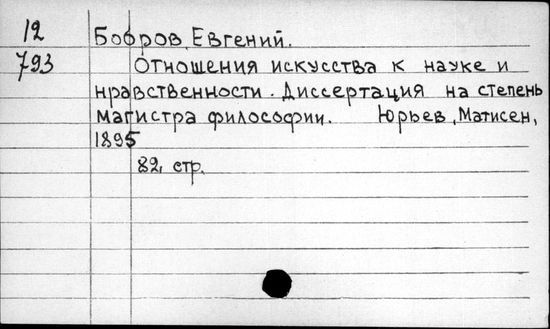 12 Бобров, Евгений.
793 Отношения искусства к науке и
нравственности. Диссертация на степень
магистра философии. Юрьев, Матисен,
1895
82, стр.